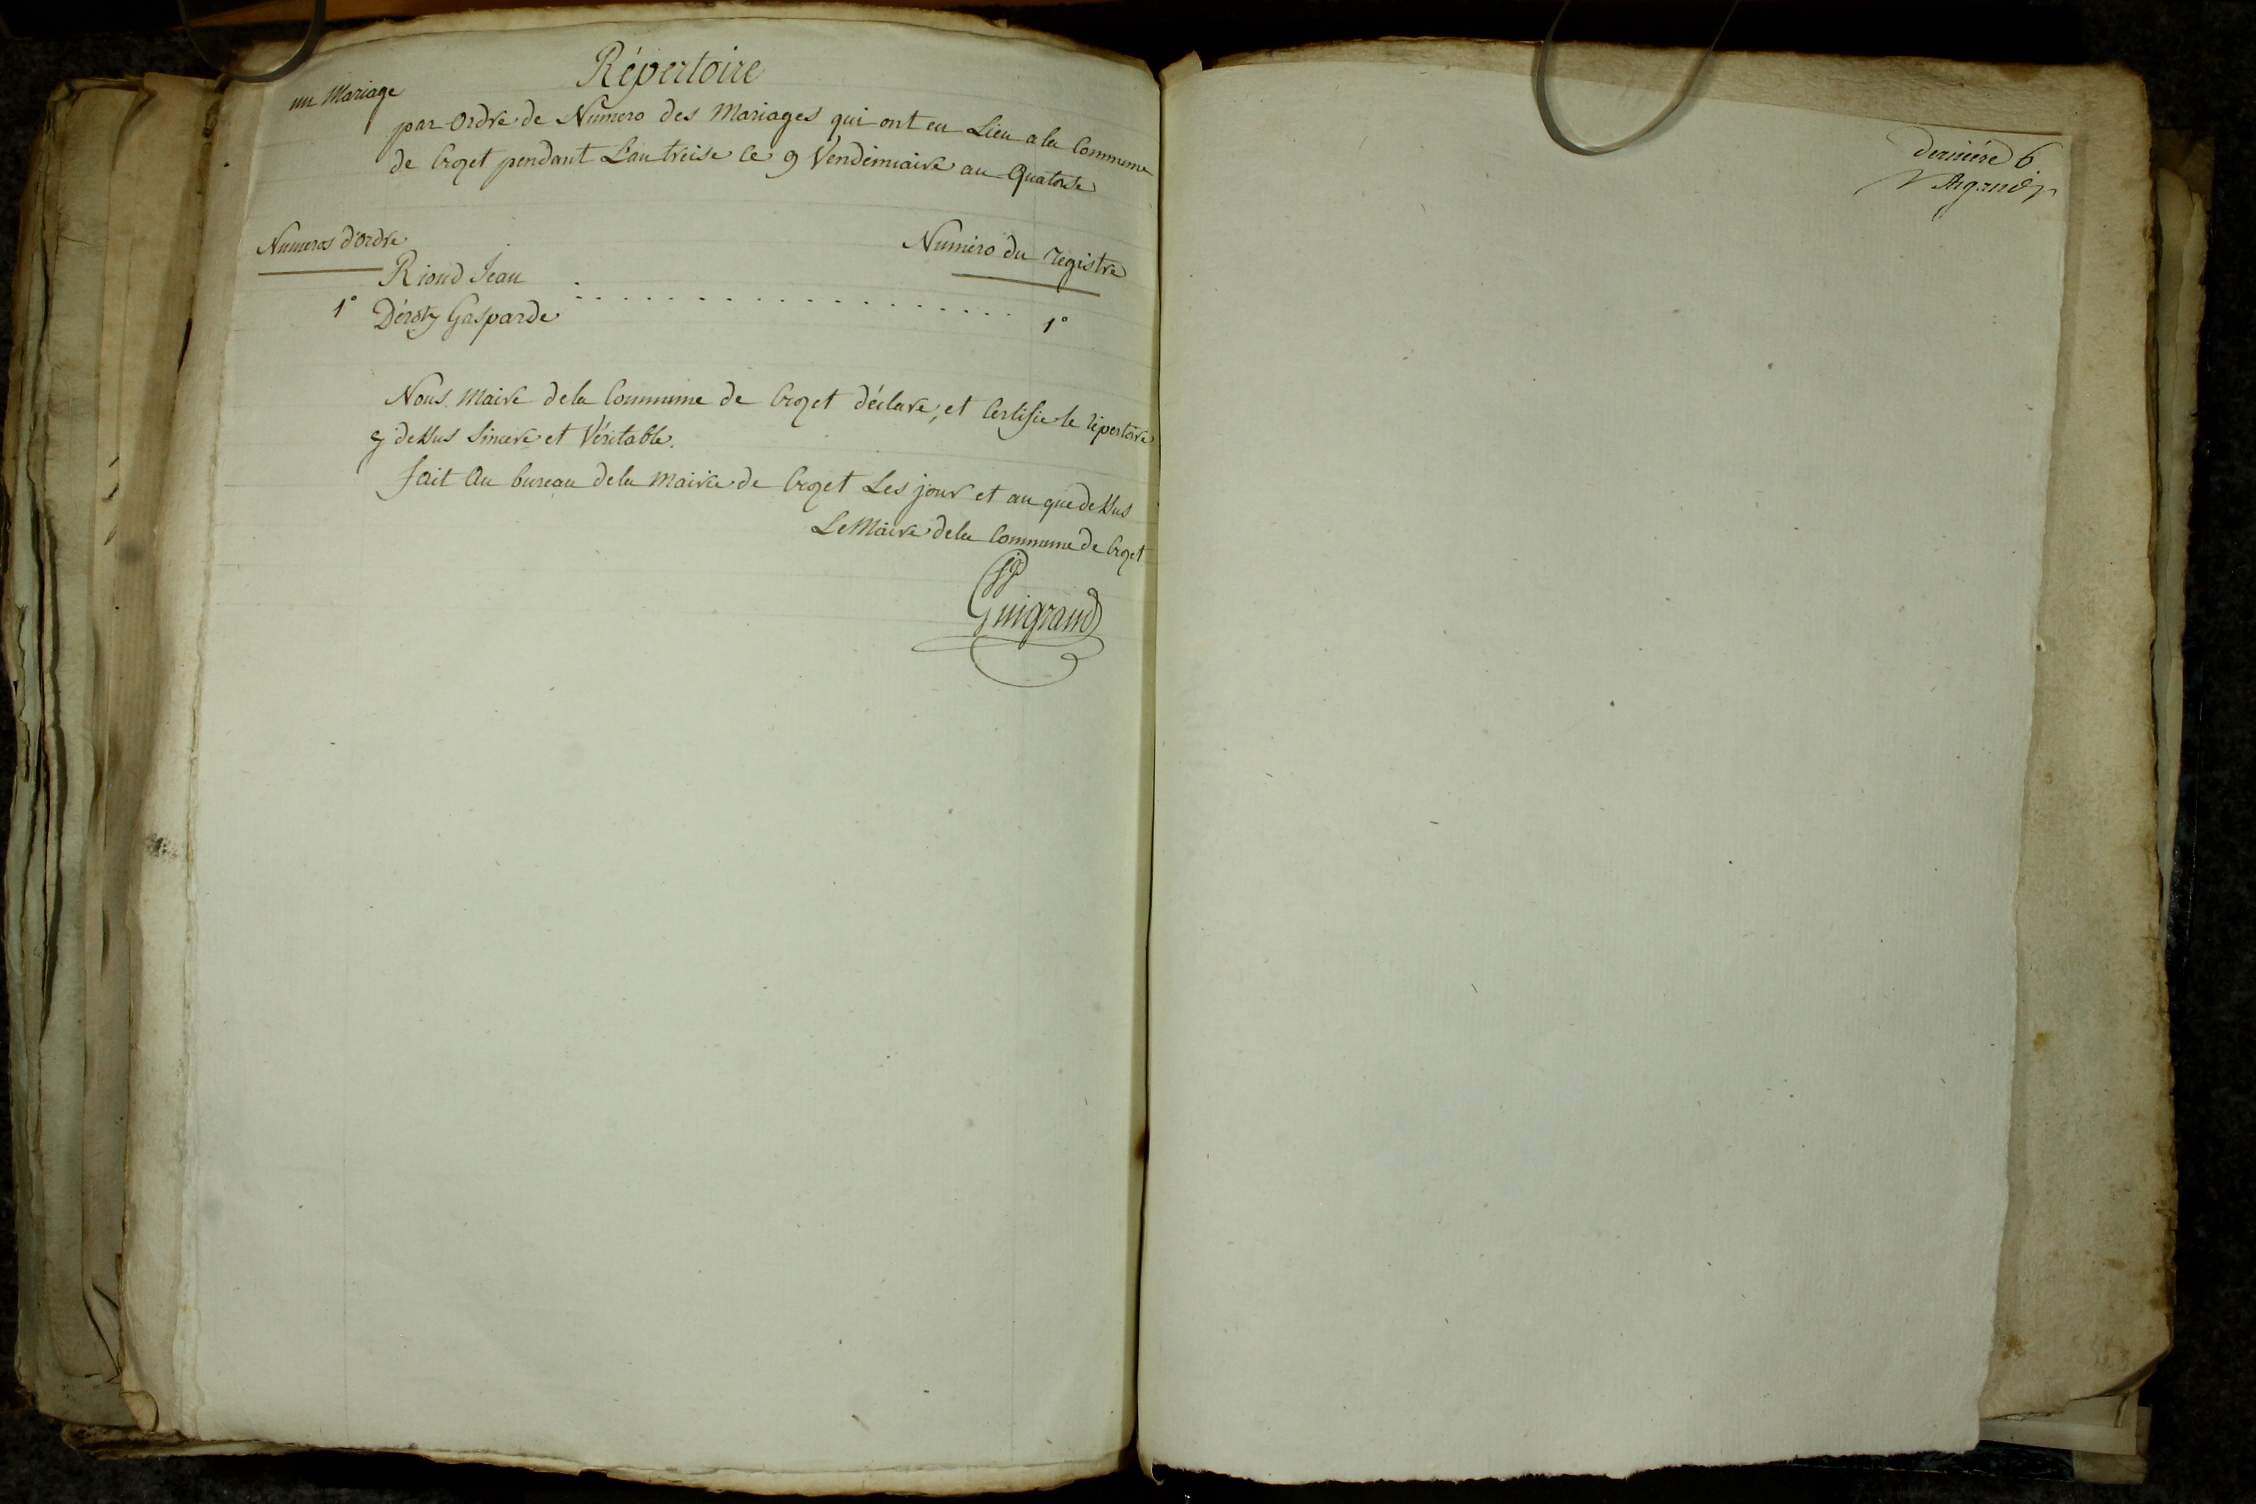 Répertoire
un Mariage
par Ordre de Numero des Mariages qui ont eu Lieu a la Commune
de Crozet pendant L'an treise le 9 Vendémiaire an Quatorze
Numeros d'Ordre
Numéro du registre
Riond Jean
1° Déroly Gasparde 1°
Nous Maire de la Commune de Crozet déclare, et Certifie le répertoire
cy dessus Sincere et Véritable.
fait Au bureau de la Mairie de Crozet Les jour et an que dessus
Le Maire de la Commune de Crozet
Guigrand
dernière 6